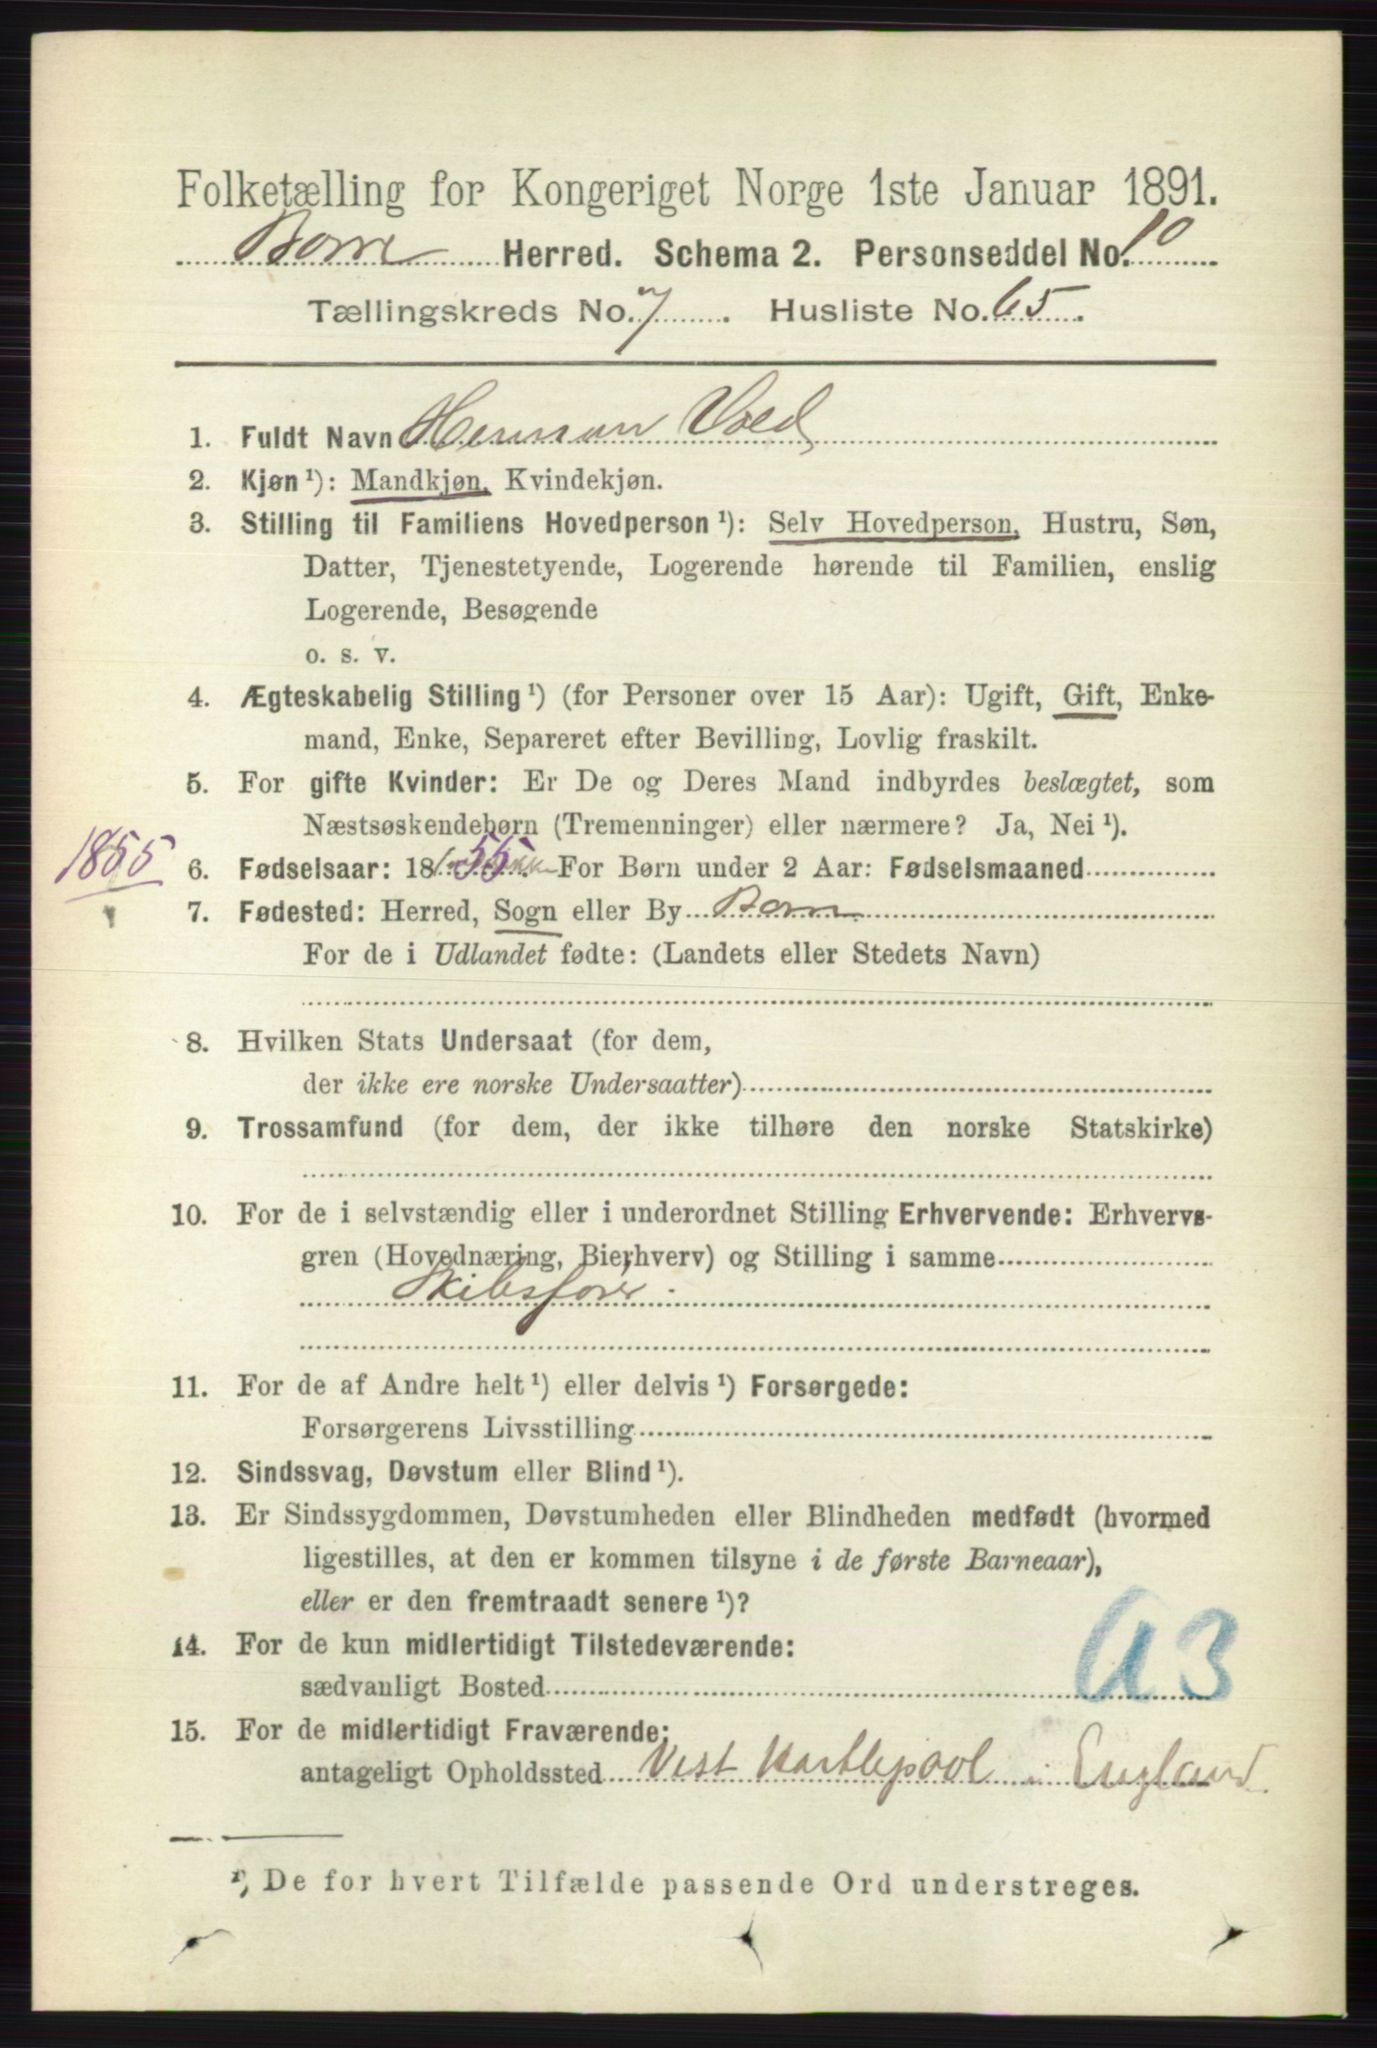 Folketælling for Kongeriget Norge 1ste Januar 1891.
Borre Herred. Schema 2. Personseddel No. 10
Tællingskreds No. 7. Husliste No. 65.
1. Fuldt Navn Herman Vold
2. Kjøn ¹): Mandkjøn, Kvindekjøn.
3. Stilling til Familiens Hovedperson ¹): Selv Hovedperson, Hustru, Søn,
Datter, Tjenestetyende, Logerende hørende til Familien, enslig
Logerende, Besøgende
o. s. v.
4. Ægteskabelig Stilling ¹) (for Personer over 15 Aar): Ugift, Gift, Enke-
mand, Enke, Separeret efter Bevilling, Lovlig fraskilt.
5. For gifte Kvinder: Er De og Deres Mand indbyrdes beslægtet, som
Næstsøskendebørn (Tremenninger) eller nærmere? Ja, Nei ¹).
1855
6. Fødselsaar: 18 55. For Børn under 2 Aar: Fødselsmaaned
7. Fødested: Herred, Sogn eller By Borre
For de i Udlandet fødte: (Landets eller Stedets Navn)
8. Hvilken Stats Undersaat (for dem,
der ikke ere norske Undersaatter)
9. Trossamfund (for dem, der ikke tilhøre den norske Statskirke)
10. For de i selvstændig eller i underordnet Stilling Erhvervende: Erhvervs-
gren (Hovednæring, Bierhverv) og Stilling i samme
Skibsfører
11. For de af Andre helt ¹) eller delvis ¹) Forsørgede:
Forsørgerens Livsstilling
12. Sindssvag, Døvstum eller Blind ¹).
13. Er Sindssygdommen, Døvstumheden eller Blindheden medfødt (hvormed
ligestilles, at den er kommen tilsyne i de første Barneaar),
eller er den fremtraadt senere ¹)?
14. For de kun midlertidigt Tilstedeværende:
sædvanligt Bosted
a 3
15. For de midlertidigt Fraværende:
antageligt Opholdssted Vest Hartlepool i England
¹) De for hvert Tilfælde passende Ord understreges.